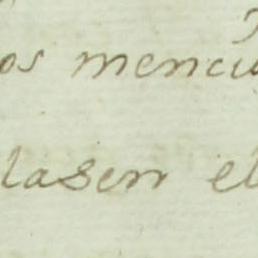 os menciu
lasen el